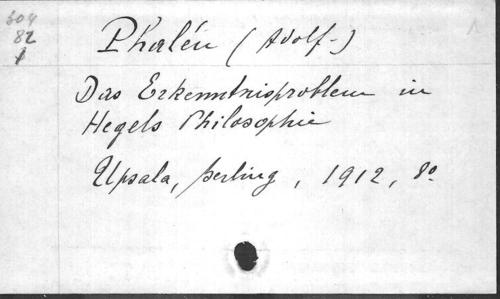 Phalén (Adolf-)
82
Das Erkenntnisproblem in
Hegels Philosophie
Upsala, Berling, 1912, 8º